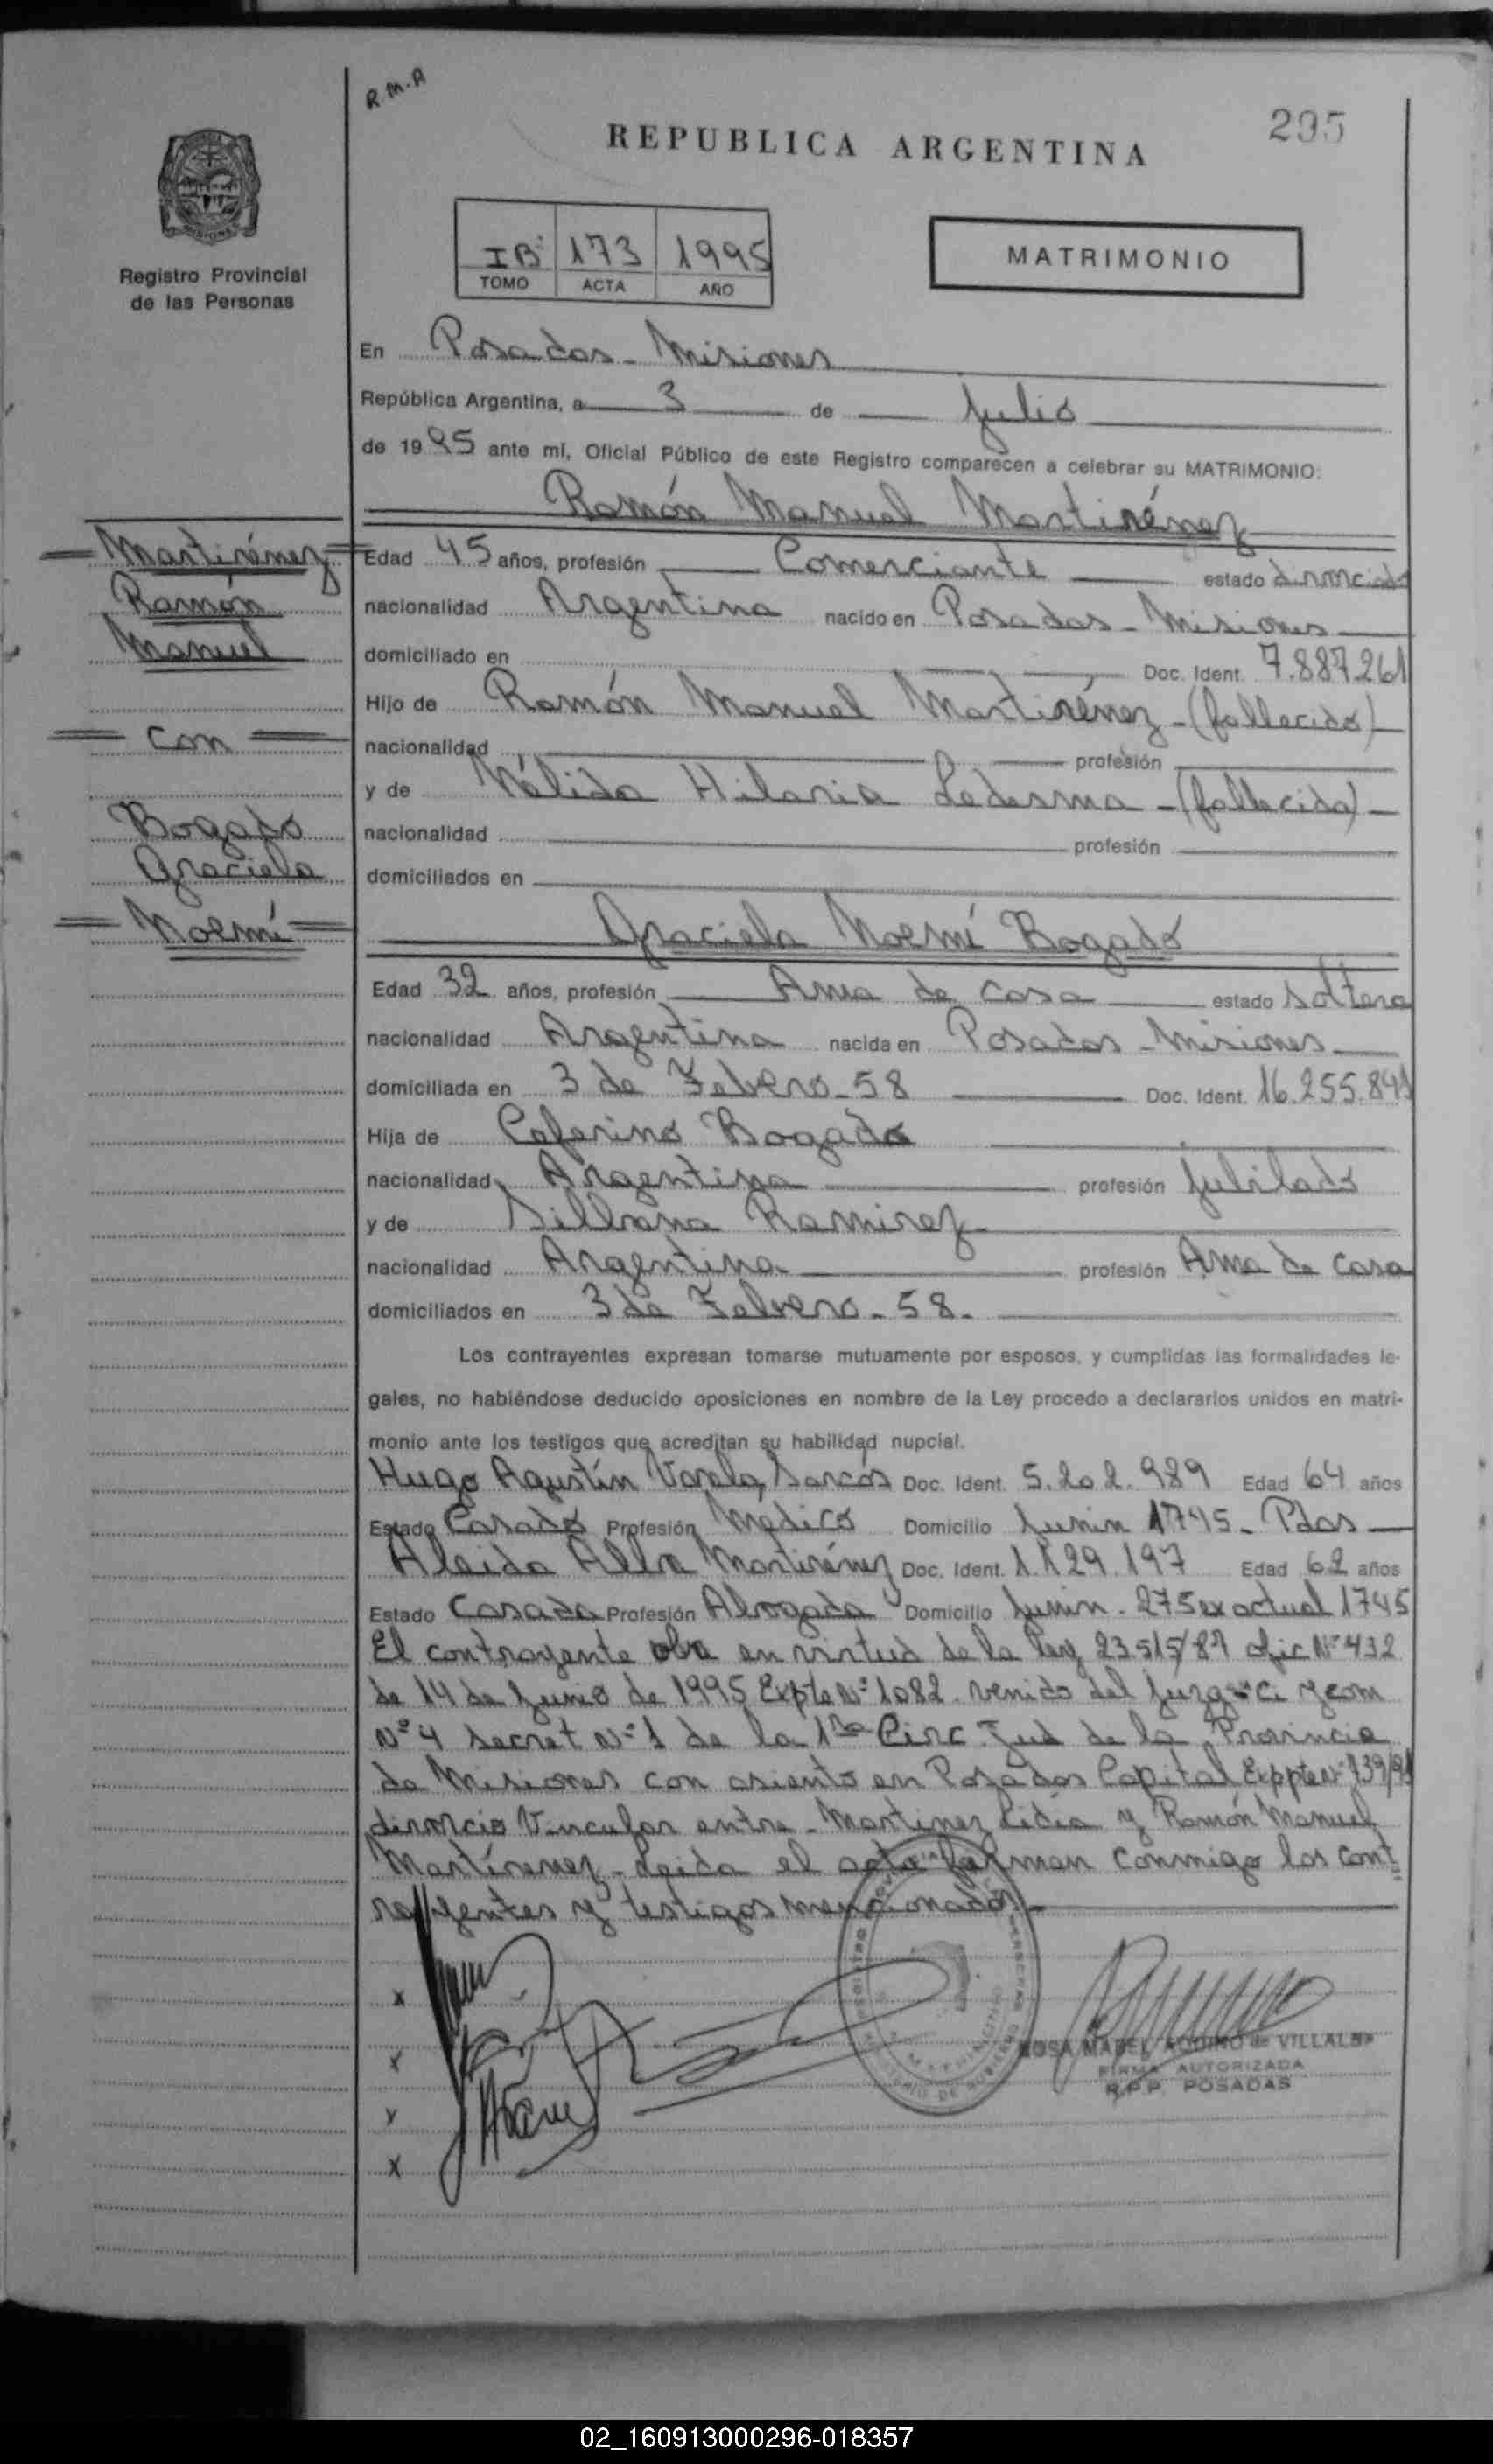 R.M.A
295
REPUBLICA ARGENTINA
Registro Provincial
de las Personas
IBº 173 1995
TOMO ACTA AÑO
MATRIMONIO
En Posadas - Misiones
República Argentina, a 3 de Julio
de 1995 ante mí, Oficial Público de este Registro comparecen a celebrar su MATRIMONIO:
Ramón Manuel Martirénez
Martirénez
Ramón
Manuel
con
Bogado
Graciela
Noemí
Edad 45 años, profesión Comerciante estado divorciado
nacionalidad Argentina nacido en Posadas - Misiones
domiciliado en Doc. Ident. 7.887.261
Hijo de Ramón Manuel Martirénez - (fallecido)
nacionalidad profesión
y de Nélida Hilaria Ledesma - (fallecida) -
nacionalidad profesión
domiciliados en
Graciela Noemí Bogado
Edad 32 años, profesión Ama de casa estado soltera
nacionalidad Argentina nacida en Posadas - Misiones
domiciliada en 3 de Febrero - 58 Doc. Ident. 16.255.841
Hija de Ceferino Bogado
nacionalidad Argentina profesión jubilado
y de Ramirez
nacionalidad Argentina profesión Ama de casa
domiciliados en 3 de Febrero - 58.
Los contrayentes expresan tomarse mutuamente por esposos, y cumplidas las formalidades le-
gales, no habiéndose deducido oposiciones en nombre de la Ley procedo a declararlos unidos en matri-
monio ante los testigos que acreditan su habilidad nupcial.
Hugo Agustín Varela Sarcos Doc. Ident. 5.202.989 Edad 64 años
Estado Casado Profesión Médico Domicilio Junin 1745 - Pdas
Aleida Alba Martirénez Doc. Ident. 1.129.197 Edad 62 años
Estado Casada Profesión Abogada Domicilio Junin - 275 ex actual 1745
El contrayente obra en virtud de la Ley 23515/87 ofic Nº 432
de 14 de Junio de 1995 Expte Nº 1082 venido del Juzg Ci y com
Nº 4 Secret Nº 1 de la 1ra Circ Jud de la Provincia
de Misiones con asiento en Posadas Capital Exppte Nº 739/91
divorcio Vincular entre - Martinez Lidia y Ramón Manuel
Martirenez - Leida el acta firman conmigo los cont-
rayentes y testigos mencionados -
X
X
y
X
ROSA MABEL AQUINO de VILLALBA
FIRMA AUTORIZADA
R.P.P. POSADAS
02_160913000296-018357